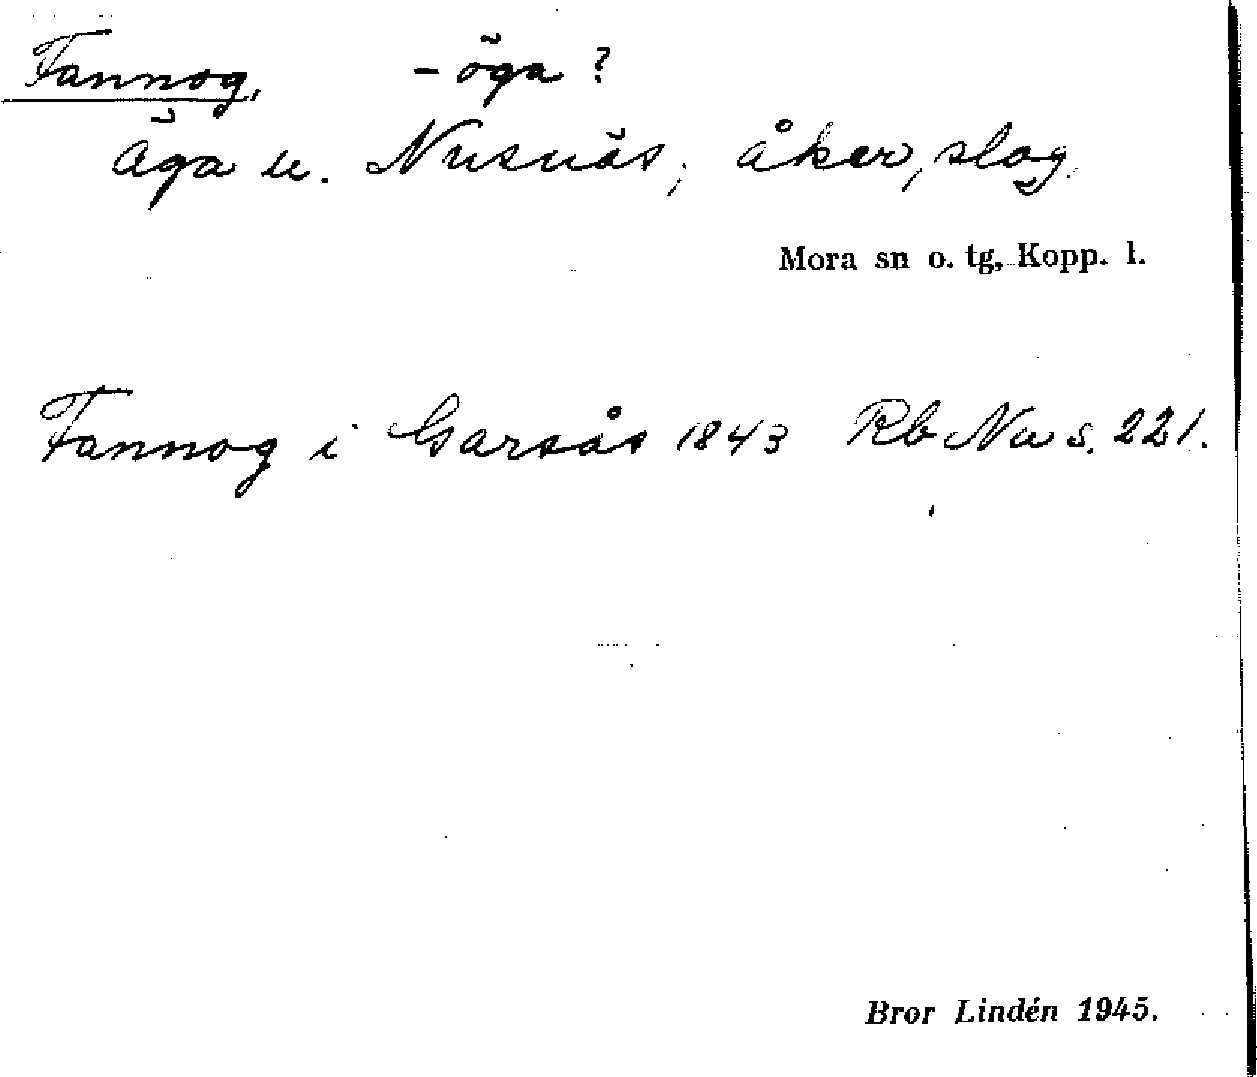 Fannog, -öga?
äga u. Nusnäs; åker, slog.
Mora sn o. tg, Kopp. l.
Fannog i Garsås 1843 Rb Nu s. 221.
Bror Lindén 1945.